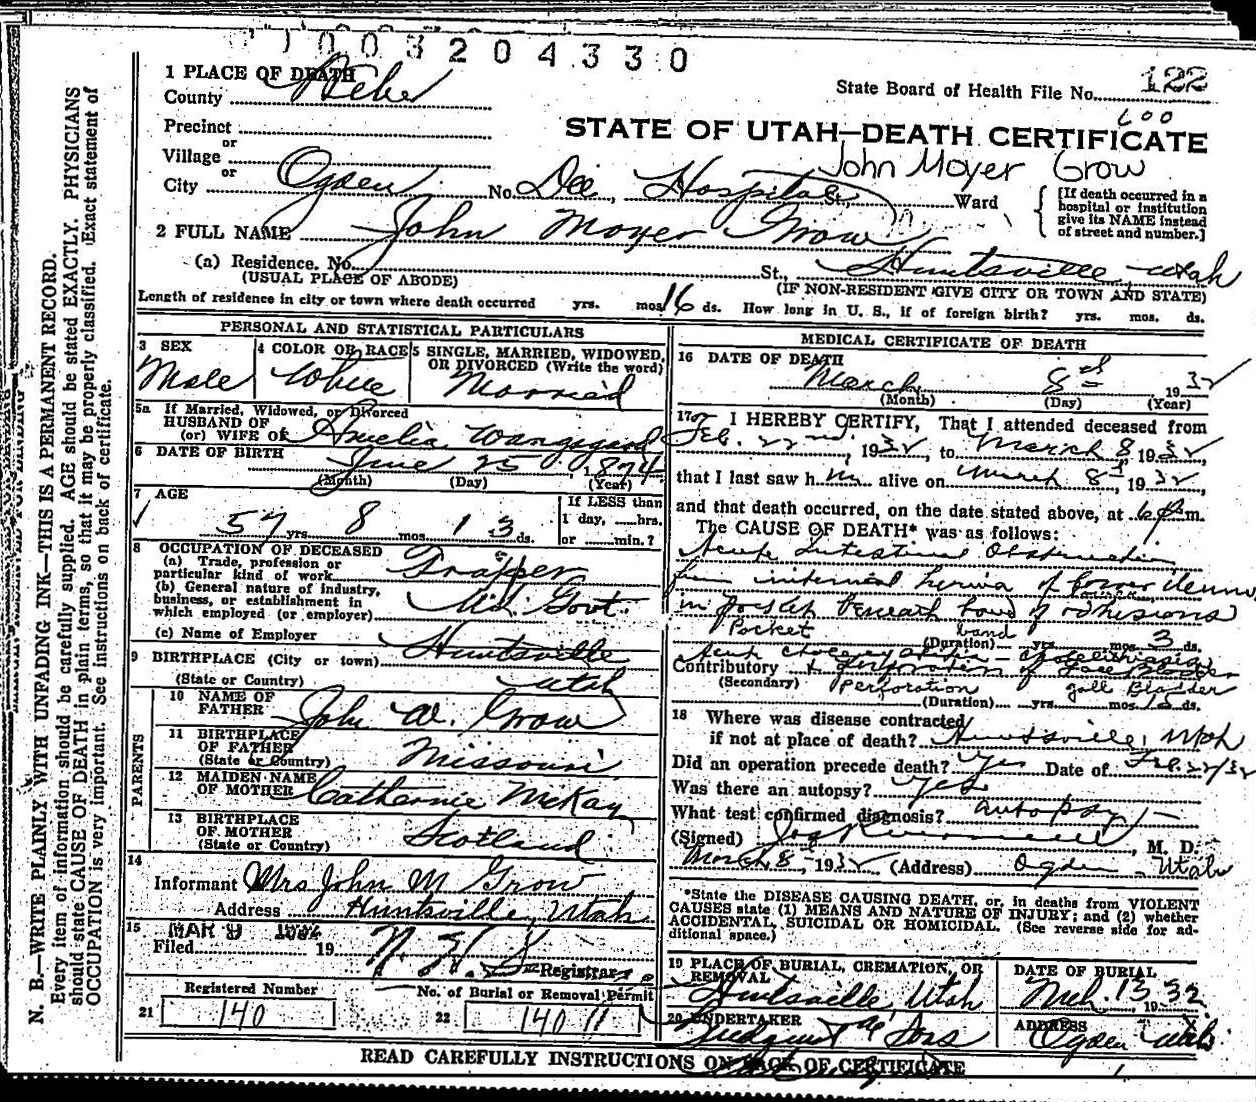 1003204330
1 PLACE OF DEATH
County Weber
State Board of Health File No. 122
600
Precinct
or
STATE OF UTAH—DEATH CERTIFICATE
Village
or
John Moyer Grow
City Ogden No. Dee Hospital St. Ward
[If death occurred in a hospital or institution give its NAME instead of street and number.]
2 FULL NAME John Moyer Grow
(a) Residence. No. St., Huntsville, Utah
(USUAL PLACE OF ABODE) (IF NON-RESIDENT GIVE CITY OR TOWN AND STATE)
Length of residence in city or town where death occurred yrs. mos. 16 ds. How long in U. S., if of foreign birth? yrs. mos. ds.
PERSONAL AND STATISTICAL PARTICULARS
3 SEX
Male
4 COLOR OR RACE
White
5 SINGLE, MARRIED, WIDOWED, OR DIVORCED (Write the word)
Married
5a If Married, Widowed, or Divorced
HUSBAND OF
(or) WIFE OF Amelia Wangsgard
6 DATE OF BIRTH June 25 1874
(Month) (Day) (Year)
7 AGE
57 yrs. 8 mos. 13 ds.
If LESS than
1 day, ___hrs.
or ___min.?
8 OCCUPATION OF DECEASED
(a) Trade, profession or
particular kind of work Trapper
(b) General nature of industry,
business, or establishment in
which employed (or employer) Govt.
(c) Name of Employer
9 BIRTHPLACE (City or town) Huntsville
(State or Country) Utah
PARENTS
10 NAME OF
FATHER John W. Grow
11 BIRTHPLACE
OF FATHER
(State or Country) Missouri
12 MAIDEN NAME
OF MOTHER Catherine McKay
13 BIRTHPLACE
OF MOTHER
(State or Country) Scotland
14
Informant Mrs John M Grow
Address Huntsville, Utah
15 MAR 9 1932
Filed 19
Registrar
Registered Number
No. of Burial or Removal Permit
21 140
22 140 11
MEDICAL CERTIFICATE OF DEATH
16 DATE OF DEATH
March 8th 1932
(Month) (Day) (Year)
17 I HEREBY CERTIFY, That I attended deceased from
Feb. 22nd, 1932, to March 8, 1932,
that I last saw him alive on March 8th, 1932,
and that death occurred, on the date stated above, at 6 p m.
The CAUSE OF DEATH* was as follows:
Acute Intestinal Obstruction
from internal hernia of lower ileum
in pocket beneath band of adhesions
Pocket band
(Duration) yrs. mos. 3 ds.
Acute
Contributory & perforation of Gall Bladder
(Secondary) Perforation gall Bladder
(Duration) yrs. mos. 15 ds.
18 Where was disease contracted
if not at place of death? Huntsville, Utah
Did an operation precede death? Yes Date of Feb. 22/32
Was there an autopsy? Yes
What test confirmed diagnosis? autopsy
(Signed) , M. D.
March 8th 1932 (Address) Ogden, Utah
*State the DISEASE CAUSING DEATH, or, in deaths from VIOLENT
CAUSES state (1) MEANS AND NATURE OF INJURY; and (2) whether
ACCIDENTAL, SUICIDAL OR HOMICIDAL. (See reverse side for ad-
ditional space.)
19 PLACE OF BURIAL, CREMATION, OR
REMOVAL
Huntsville, Utah
DATE OF BURIAL
Mch. 13 1932
20 UNDERTAKER
& Sons
ADDRESS
Ogden Utah
READ CAREFULLY INSTRUCTIONS ON BACK OF CERTIFICATE
N. B.—WRITE PLAINLY WITH UNFADING INK—THIS IS A PERMANENT RECORD.
Every item of information should be carefully supplied. AGE should be stated EXACTLY. PHYSICIANS
should state CAUSE OF DEATH in plain terms, so that it may be properly classified. Exact statement of
OCCUPATION is very important. See instructions on back of certificate.